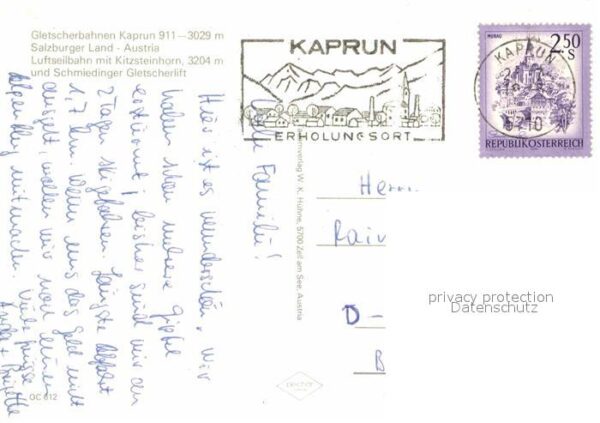 Gletscherbahnen Kaprun 911—3029 m
Salzburger Land - Austria
Luftseilbahn mit Kitzsteinhorn, 3204 m
und Schmiedinger Gletscherlift
KAPRUN
ERHOLUNGSORT
MURAU
2.50
S
KAPRUN
5710
REPUBLIK ÖSTERREICH
Familie!
Hier ist es wunderschön, wir
haben schon mehrere Gipfel
erstürmt, bisher sind wir an
2 Tagen skigefahren. Längste Abfahrt
1,7 km. Wenn uns das Geld nicht
ausgeht, wollen wir noch einen
Alpenflug mitmachen. Viele Grüsse
W. K. Hühne, 5700 Zell am See, Austria
Herrn
Rai
D-
B
privacy protection
Datenschutz
GC 812